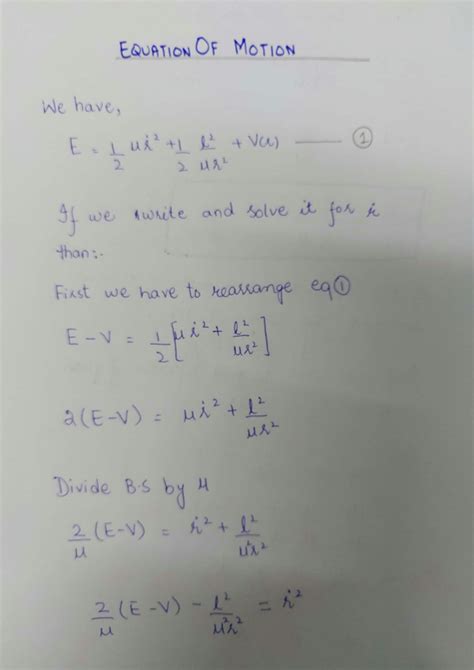 EQUATION OF MOTION
We have,
E = 1/2 μṙ² + 1/2 l²/μr² + V(r) —— ①
If we rwrite and solve it for ṙ
than:-
First we have to rearrange eq ①
E - V = 1/2 [μṙ² + l²/μr²]
2(E-V) = μṙ² + l²/μr²
Divide B.S by μ
2/μ (E-V) = ṙ² + l²/μ²r²
2/μ (E-V) - l²/μ²r² = ṙ²